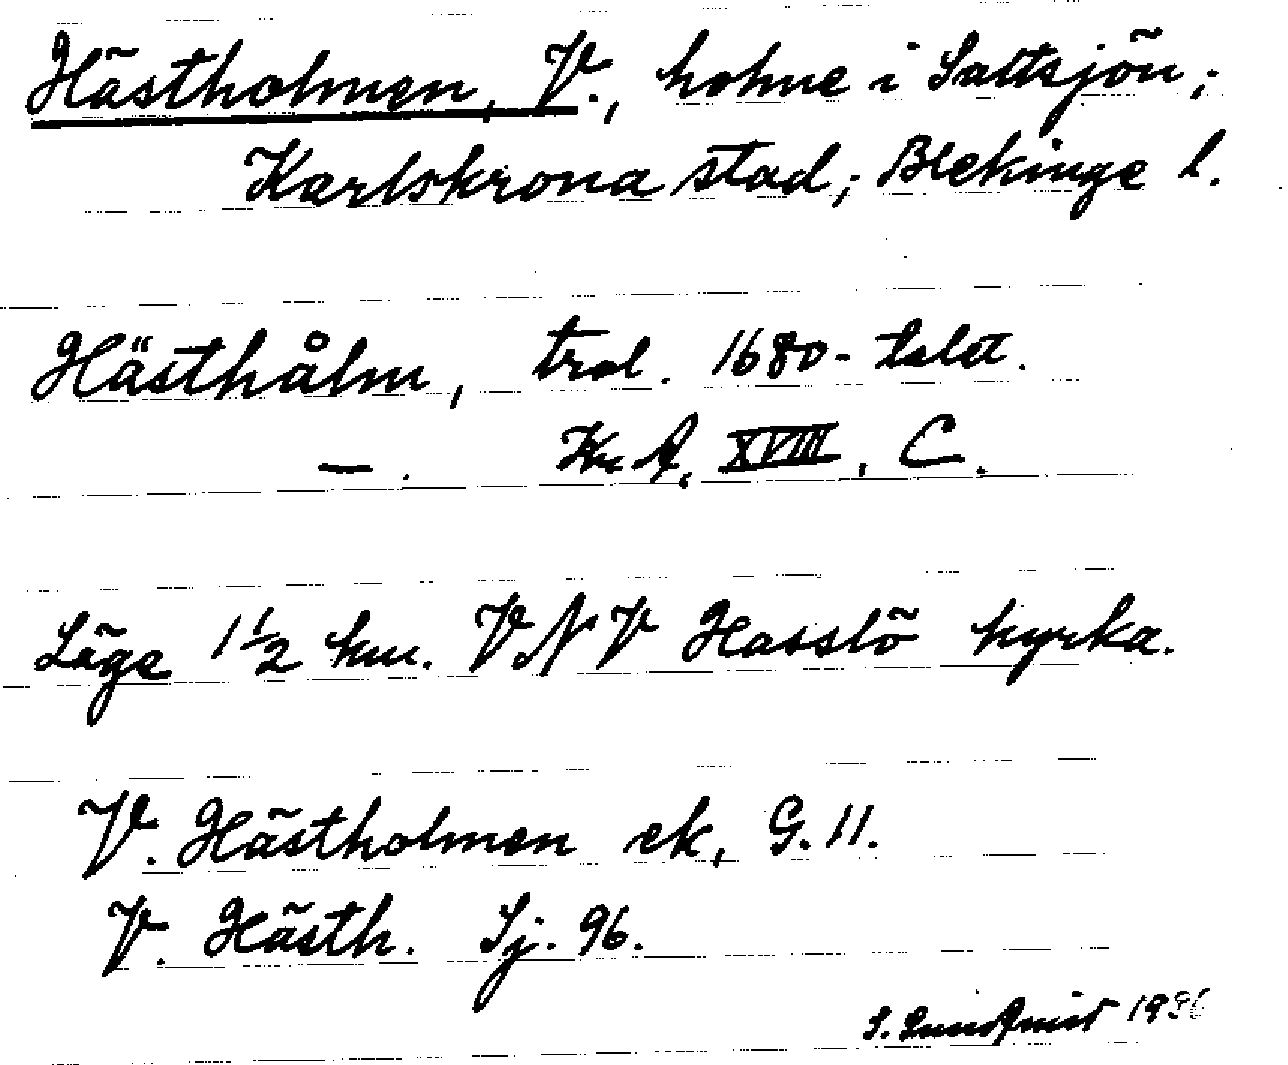 Hästholmen, V., holme i Saltsjön;
Karlskrona stad; Blekinge l.
Hästhålm, trol. 1680-talet.
—. KrA, XVIII, C.
Läge 1 1/2 km. VNV Hasslö kyrka.
V. Hästholmen ek, G. 11.
V. Hästh. Sj. 96.
S. Lundqvist 1936